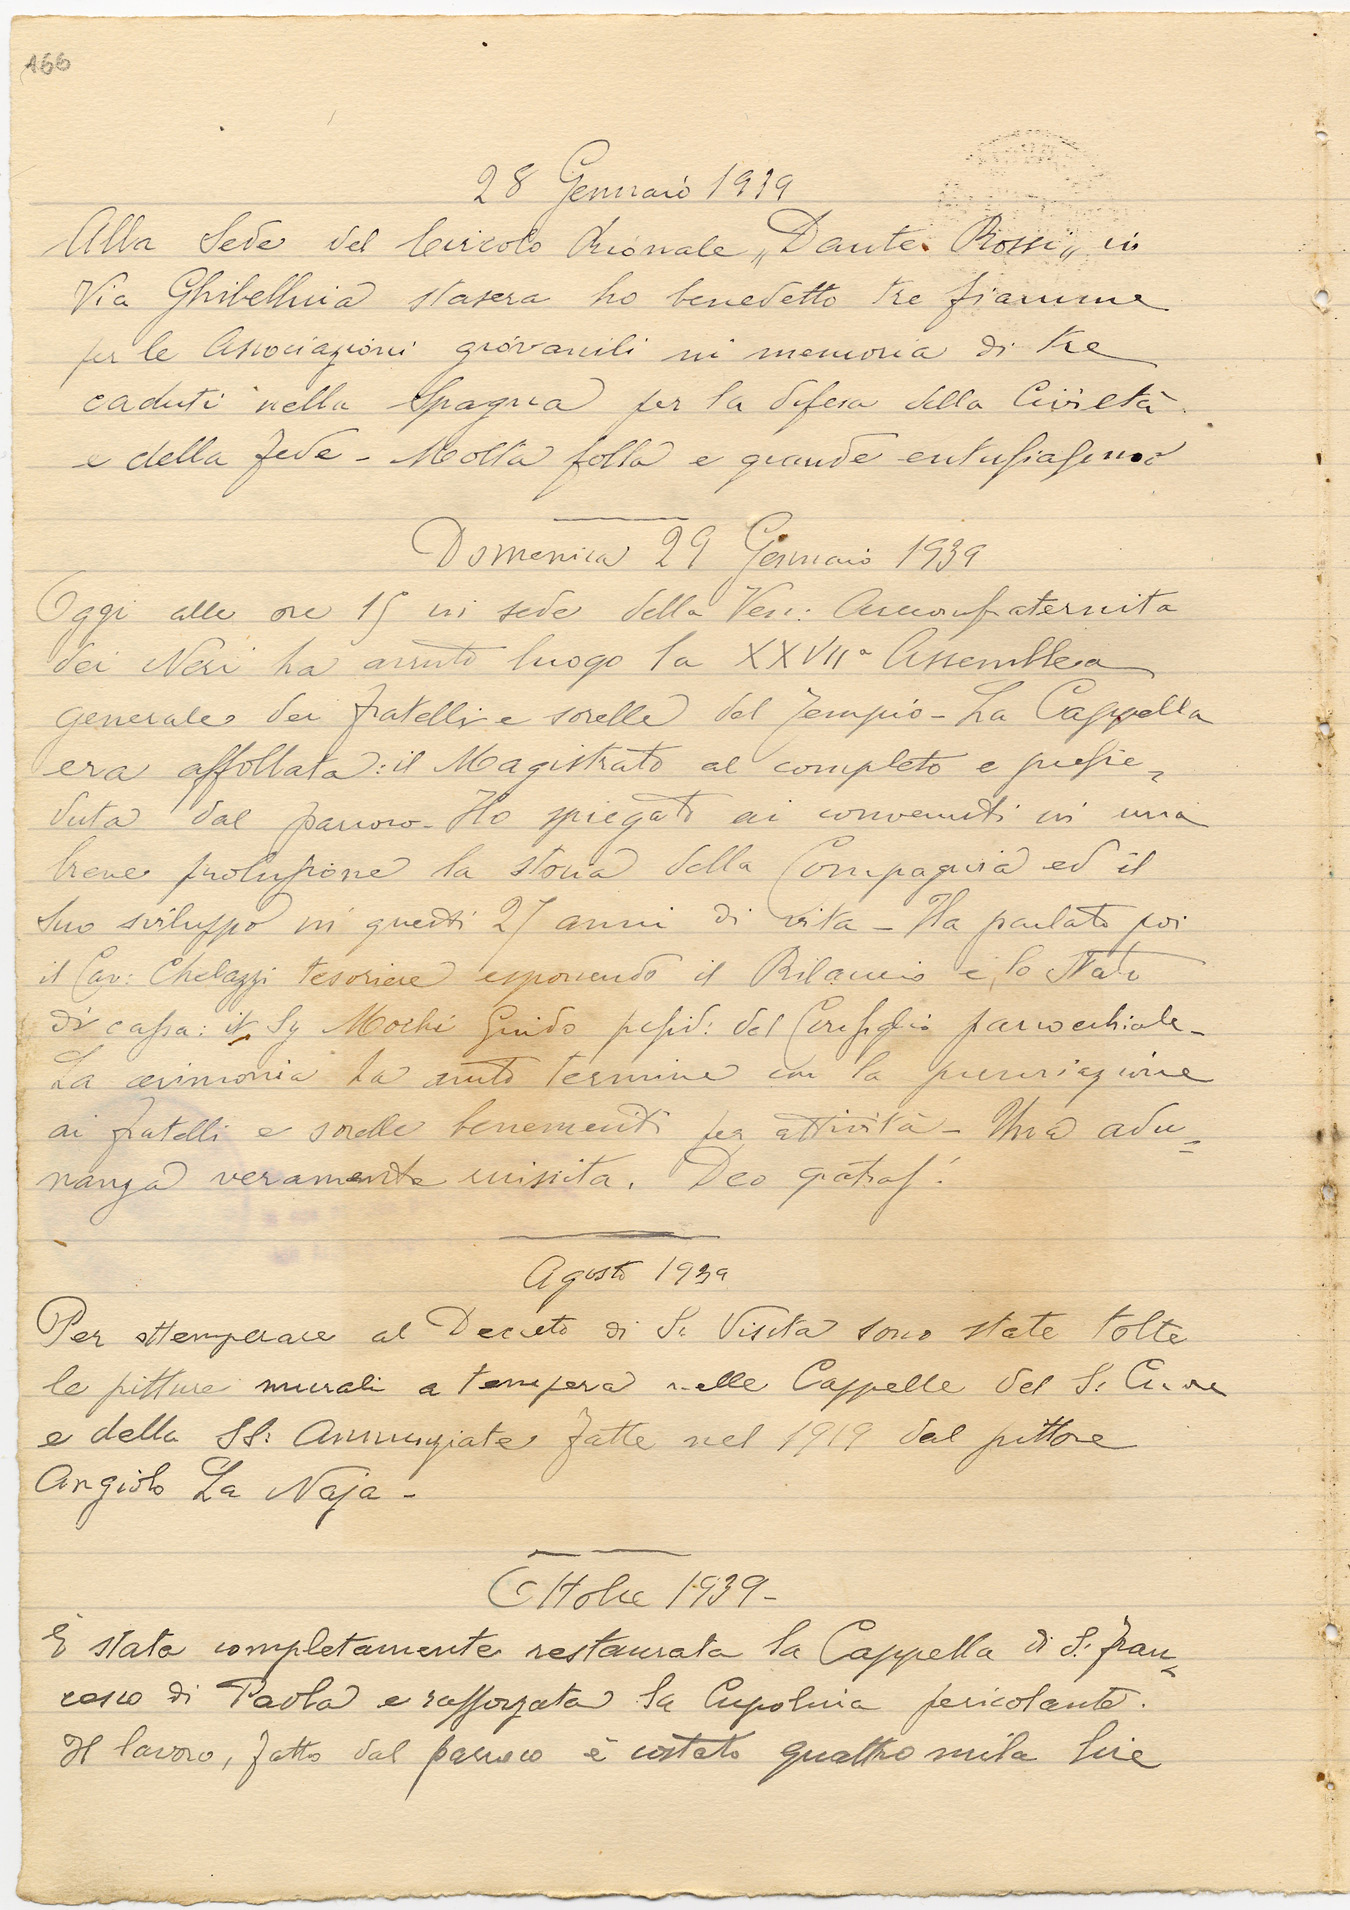 166
28 Gennaio 1939
Alla Sede del Circolo Rionale „Dante Rossi„ in
Via Ghibellina stasera ho benedetto tre fiamme
per le Associazioni giovanili in memoria di tre
caduti nella Spagna per la difesa della Civiltà
e della Fede - Molta folla e grande entusiasmo
Domenica 29 Gennaio 1939
Oggi alle ore 15 in sede della Ven: Arciconfraternita
dei Neri ha avuto luogo la XXVIIª Assemblea
generale dei fratelli e sorelle del Tempio - La Cappella
era affollata: il Magistrato al completo e presie=
duta dal parroco - Ho spiegato ai convenuti in una
breve prolusione la storia della Compagnia ed il
suo sviluppo in questi 27 anni di vita - Ha parlato poi
il Cav: Chelazzi tesoriere esponendo il Bilancio e lo Stato
di cassa: il Sg Mochi Guido presid: del Consiglio parrocchiale -
La cerimonia ha avuto termine con la premiazione
ai fratelli e sorelle benemeriti per attività - Una adu=
nanza veramente riuscita. Deo gratias!
Agosto 1939
Per ottemperare al Decreto di S. Visita sono state tolte
le pitture murali a tempera nelle Cappelle del S: Cuore
e della SS: Annunziata fatte nel 1919 dal pittore
Angiolo La Naja -
Ottobre 1939 -
È stata completamente restaurata la Cappella di S: Fran=
cesco di Paola e rafforzata la Cupolina pericolante.
Il lavoro, fatto dal parroco è costato quattro mila lire